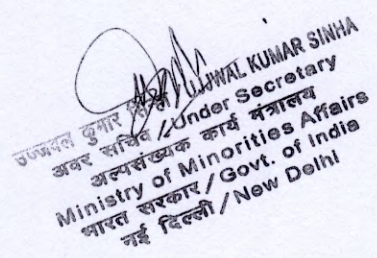 उज्जवल कुमार UJWAL KUMAR SINHA
अवर सचिव / Under Secretary
अल्पसंख्यक कार्य मंत्रालय
Ministry of Minorities Affairs
भारत सरकार / Govt. of India
नई दिल्ली / New Delhi